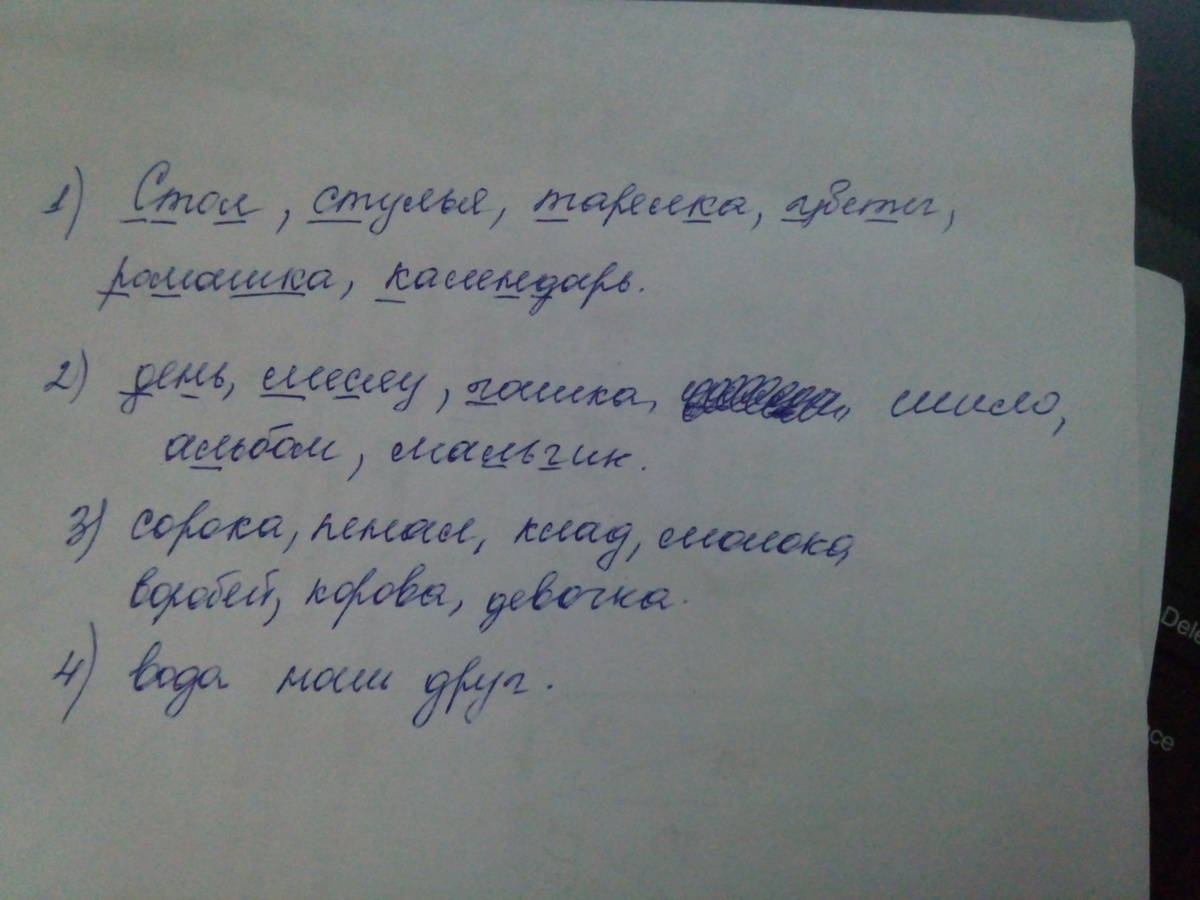 1) Стол, стулья, тарелка, цветы,
ромашка, календарь.
2) день, чашка, шило,
альбом, мальчик.
3) сорока, пенал, клад, молоко,
воробей, корова, девочка.
4) вода наш друг.
Dele
ce